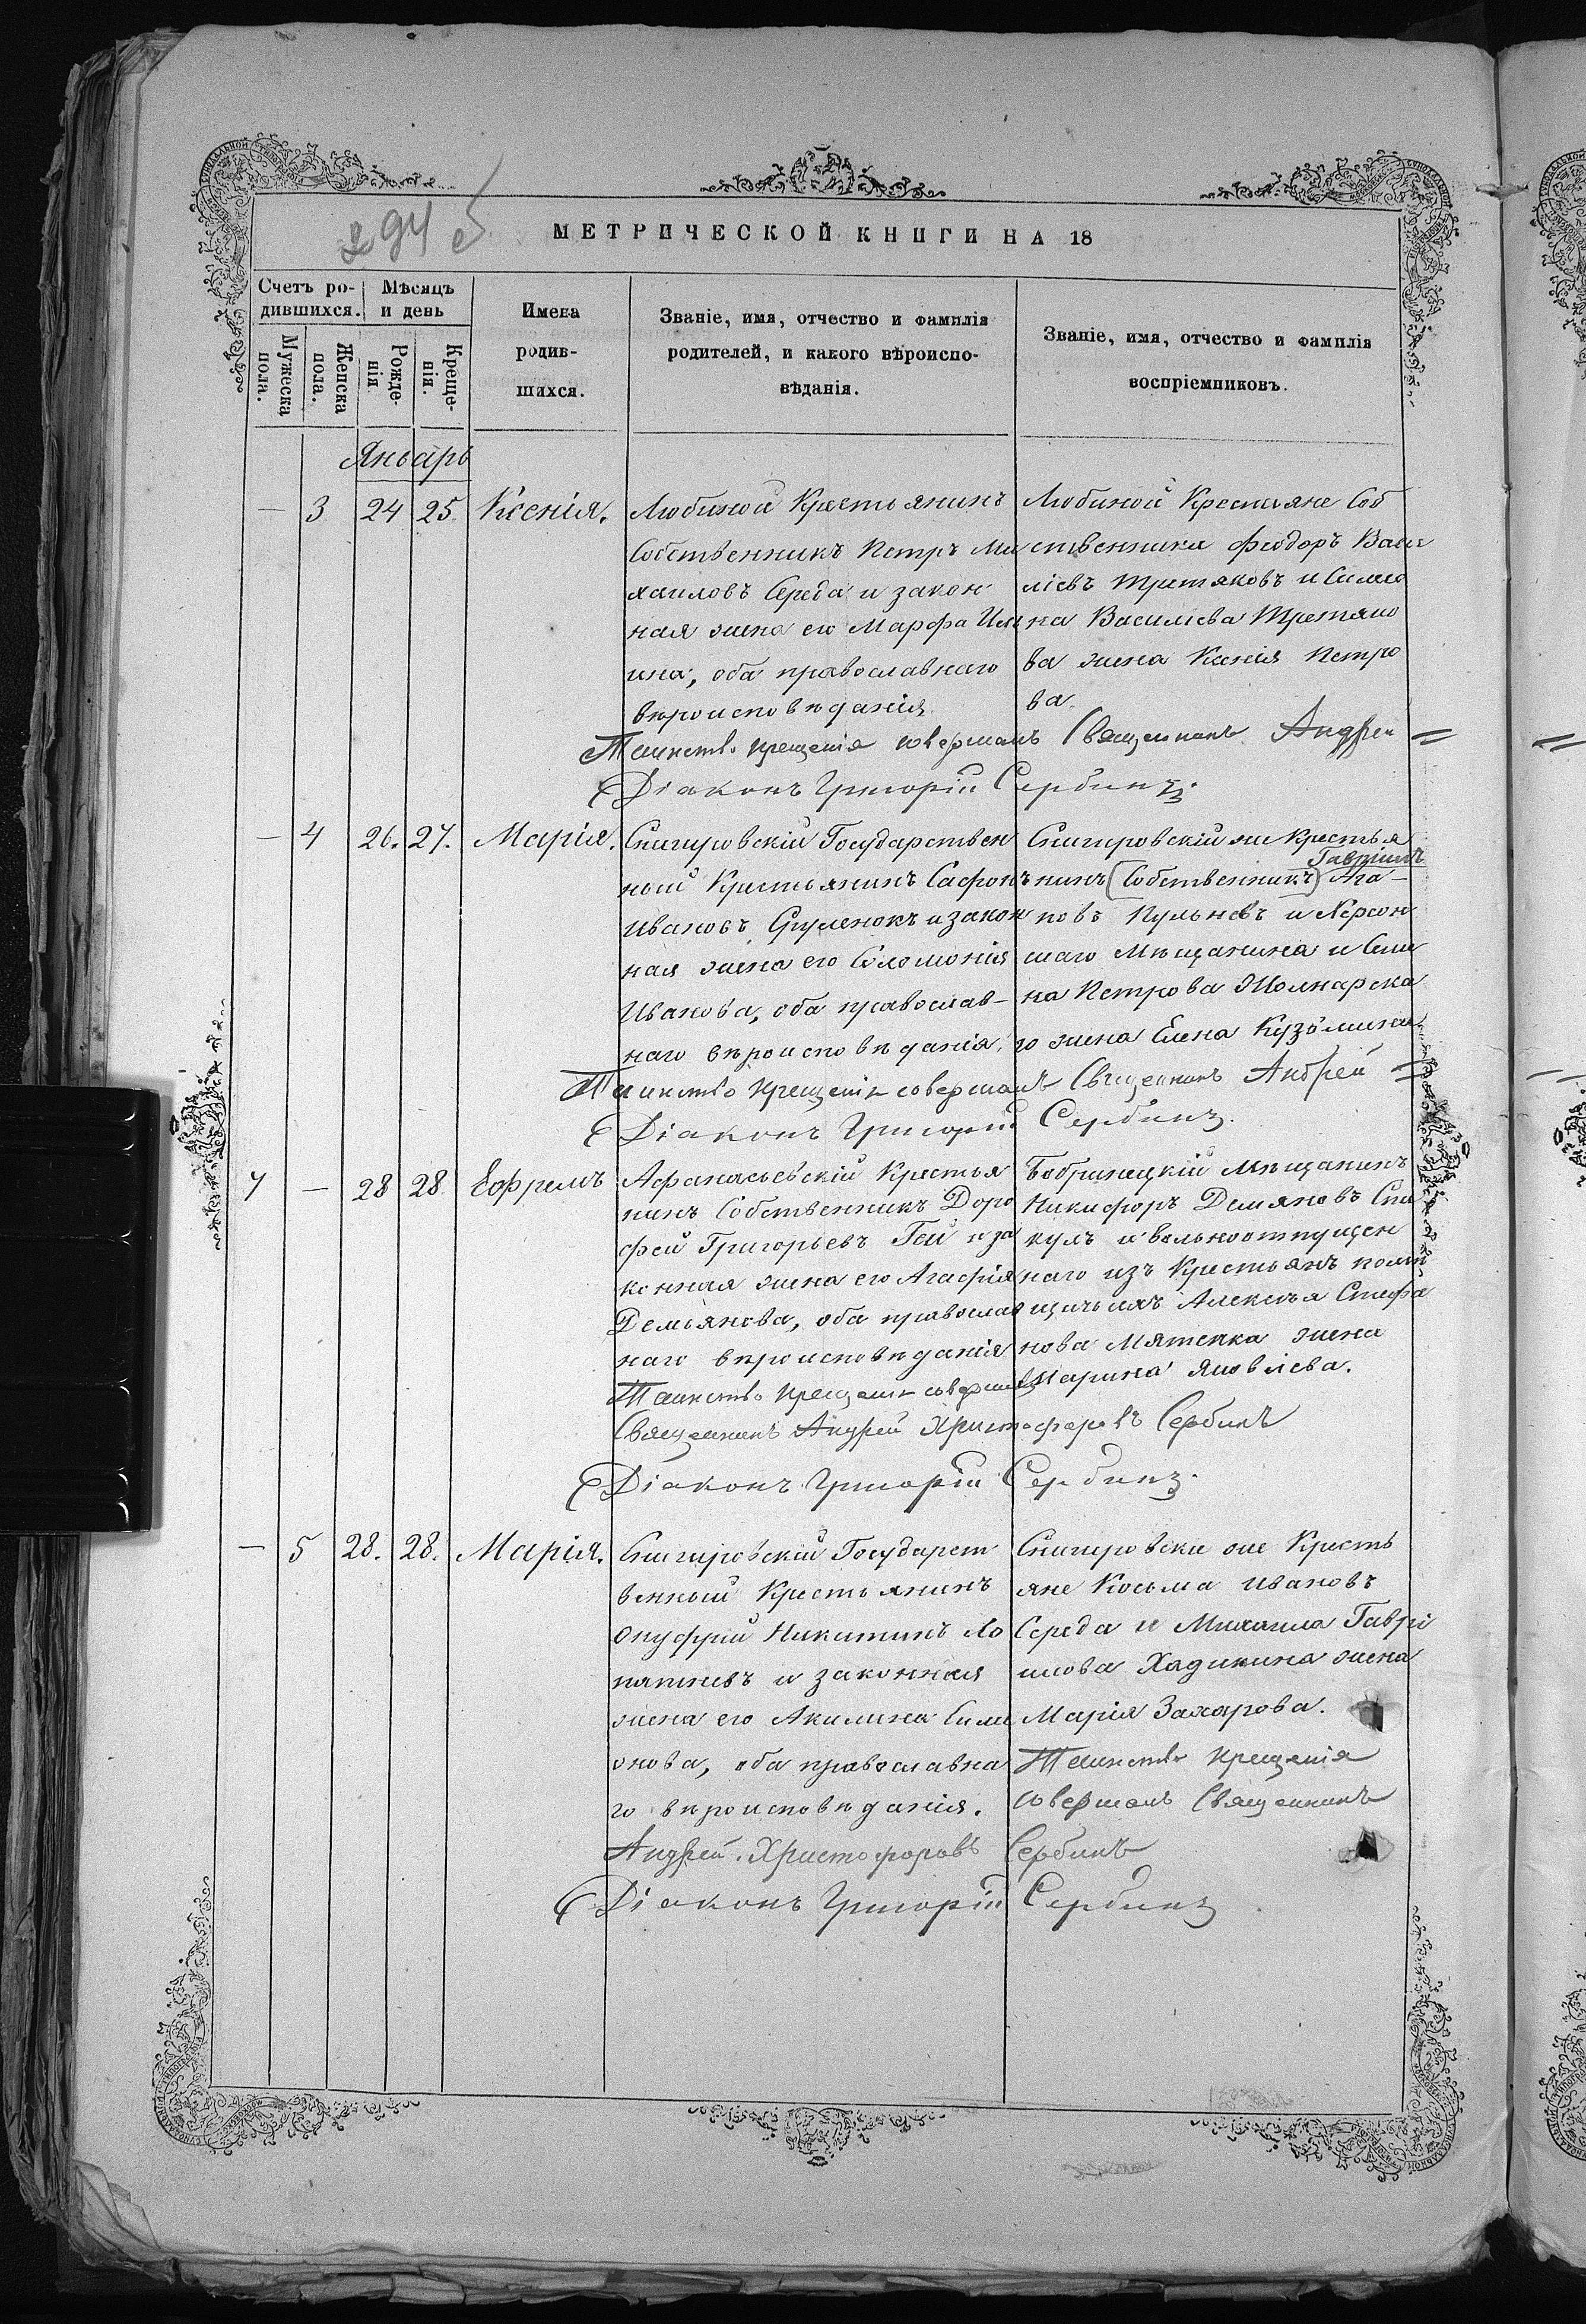 294 об
МЕТРИЧЕСКОЙ КНИГИ НА 18
Счетъ ро-
дившихся.
Мужеска
пола.
Женска
пола.
Мѣсяцъ
и день
Рожде-
нія
Креще-
нія.
Имена
родив-
шихся.
Званіе, имя, отчество и фамилія
родителей, и какого вѣроиспо-
вѣданія.
Званіе, имя, отчество и фамилія
воспріемниковъ.
Январь
— 3 24 25 Ксенія.
Любиной Крестьянинъ
Собственникъ Петръ Ми
хаиловъ Середа и закон
ная жена его Марфа Иль
ина, оба православнаго
вѣроисповѣданія
Любиной Крестьяне Соб
ственники Феодоръ Васи
ліевъ Третяковъ и Симео
на Василіева Третяко
ва жена Ксенія Петро
ва.
Таинство крещенія совершалъ Священникъ Андрей =
Діаконъ Григорій Сербинъ.
— 4 26. 27. Марія.
Снигировскій Государствен
ный Крестьянинъ Сафонъ
Ивановъ Стуленокъ и закон
ная жена его Соломонія
Иванова, оба православ-
наго вѣроисповѣданія,
Снигировскій же Крестья
нинъ (Собственникъ) Гавриилъ Ага-
повъ Пульневъ и Херсон
скаго Мѣщанина и Сим
на Петрова Жолнарска
го жена Елена Кузьмина
Таинство крещенія совершалъ Священникъ Андрей =
Діаконъ Григорій Сербинъ.
7 — 28 28 Ефремъ
Афанасьевскій Крестья
нинъ Собственникъ Доро
фей Григорьевъ Гей и за
конная жена его Агафія
Демьянова, оба православ
наго вѣроисповѣданія
Бобринецкій Мѣщанинъ
Никифоръ Демяновъ Спи
куль и вольноотпущен
наго изъ Крестьянъ помѣ
щичьихъ Алексѣя Стефа
нова Мятенка жена
Марина Яковлева.
Таинство крещенія совершалъ
Священникъ Андрей Христофоровъ Сербинъ
Діаконъ Григорій Сербинъ.
— 5 28. 28. Марія.
Снигировскій Государст
венный Крестьянинъ
Онуфрій Никитинъ Ло
патневъ и законная
жена его Акилина Сими
онова, оба православна
го вѣроисповѣданія.
Снигировски же Кресть
яне Косьма Ивановъ
Середа и Михаила Гаврі
илова Хадикина жена
Марія Захарова.
Таинство крещенія
совершалъ Священникъ
Андрей Христофоровъ Сербинъ
Діаконъ Григорій Сербинъ